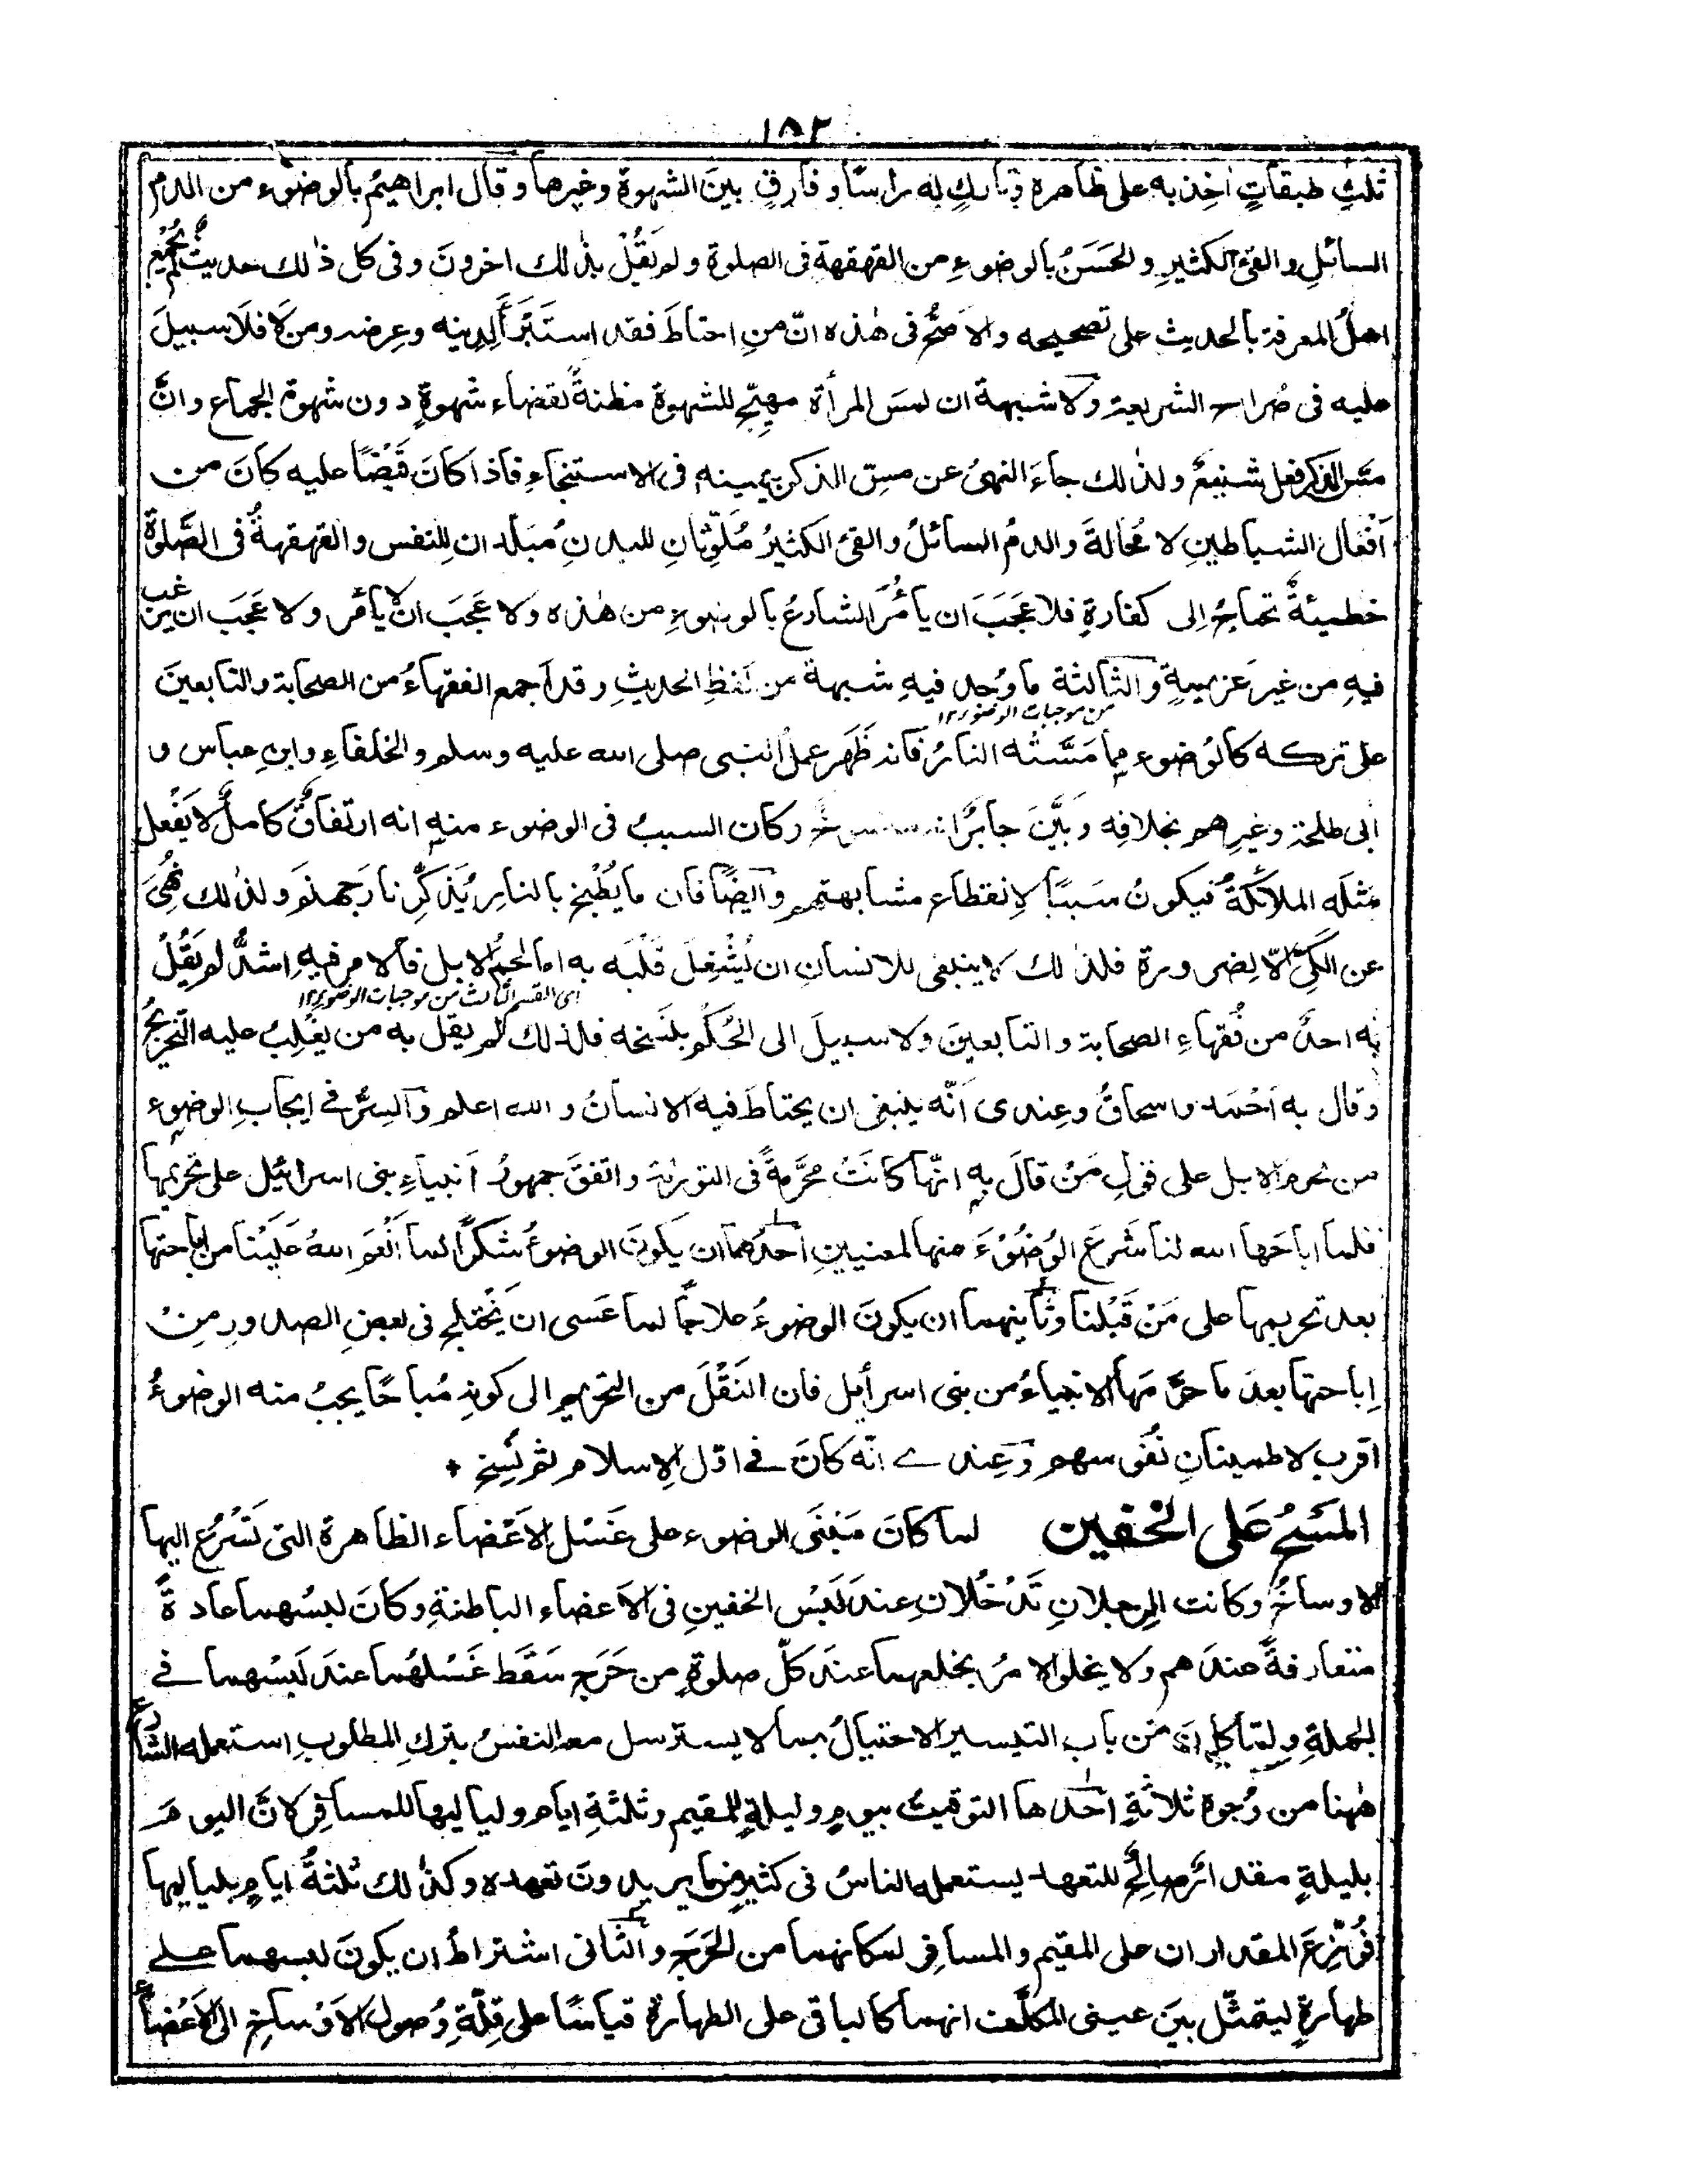 ١٥٢
ثلث طبقاتٍ اٰخِذ به على ظاهره وتاركٍ له راسًا وفارقٍ بينَ الشهوةِ وغيرها وقال ابراهيمُ بالوضوء من الدم
السائلِ والقئ الكثيرِ والحَسَنُ بالوضوءِ من القهقهة فى الصلوة ولم يَقُلْ بذٰلك اخرونَ وفى كل ذٰلك حديثٌ لم يُجْمِع
اهلُ المعرفة بالحديث على تصحيحه والاَصَحُّ فى هٰذه انّ منِ احتاطَ فقد استَبْرَأَ لدينه وعِرضه ومن لا فلَا سبيلَ
عليه فى صُراح الشريعة ولا شبهة ان لمسَ المرأة مهيّج للشهوة مظنةٌ لقضاء شهوةٍ دون شهوة الجماع وانَّ
مسّ الذكر فعل شنيعٌ ولذٰلك جاءَ النهىُ عن مسّ الذكر بيمينه فى الاستنجاءِ فاذا كانَ قَبْضًا عليه كانَ من
اَفْعال الشياطينِ لا مُحالةَ والدمُ السائلُ والقئ الكثيرُ مُلَوِّثانِ للبدنِ مُبَلِّدان لِلنفس والقهقهةُ فى الصَّلوٰة
خطيئةٌ تحتاجُ اِلى كفارةٍ فلا عجَبَ ان يأمُرَ الشارعُ بالوضوءِ من هٰذه ولا عَجَبَ ان لا يأمُر ولا عَجَبَ ان يرغب
فيهِ من غير عَزيمةٍ والثالثة ما وُجد فيهِ شبهة من لفظِ الحديثِ وقد اَجمع الفقهاءُ من الصحابة والتابعينَ
من موجبات الوضوء ١٢
على تركه كالوُضوء مِما مَسَّتْه النارُ فانه ظَهَر عملُ النبى صلى الله عليه وسلم والخلفاءِ وابنِ عباس و
ابى طلحة وغيرِهم بخلافِه وبَيَّنَ جابرٌ انه منسوخٌ وكان السببُ فى الوضوء منه انه ارتفاقٌ كاملٌ لا يَفْعل
مثلَه الملآئكةُ فيكونُ سَببًا لِانقطاع مشابهتهم وايضًا فان ما يُطْبخ بالنارِ يُذَكِّر نارَ جهنمَ ولذٰلك نُهِىَ
عن الكَىِّ الّا لِضرورة فلذٰلك لا ينبغى للانسانِ ان يُشْغِلَ قَلْبَه به اما لَحْمُ الابل فالامر فيهِ اشدُّ لم يَقُلْ
اى القسم الثالث من موجبات الوضوء ١٢
به احدٌ من فُقهاءِ الصحابة والتابعينَ ولا سبيلَ الى الحُكْم بنَسْخه فلذٰلك لم يقل به من يغْلِبُ عليه التخريجُ
وقال به اَحْمَد واسحاقُ وعِندى اَنّه ينبغى ان يحتاطَ فيه الانسانُ والله اعلم والسِرُّ فى ايجابِ الوضوء
من لحوم الابل على قولِ مَنْ قالَ بهِ انّها كانَتْ محرَّمةً فى التورٰية واتفقَ جمهورُ اَنبياءِ بنى اسرائيل على تحريمها
فلما اباحَها الله لنا شَرَعَ الوُضُوْءَ منها لمعنيينِ احدهما ان يكونَ الوضوءُ شكرًا لما اَنْعَمَ اللهُ عَلَيْنا من اباحتها
بعد تحريمها على مَنْ قَبْلنا وثانيهما ان يكونَ الوضوءُ علاجًا لما عَسى ان يَخْتلج فى بعضِ الصدورِ مِنْ
اِباحتها بعدَ ما حرَّمَها الانبياءُ من بنى اسرأيل فان النَقْلَ من التحريم الى كونهِ مُباحًا يجبُ منه الوضوءُ
اقرب لاطمينانِ نُفُوسهم وعِندى انّه كانَ فى اوّل الاِسلام ثم نُسِخ +
المَسْحُ عَلى الخفين لما كانَ مَبْنَى الوضوء على غَسْل الاَعْضاء الظاهرة التى تَسْرُعُ اليها
الاوساخُ وكانت الرِجلانِ تَدْخُلانِ عندَ لُبْس الخفينِ فى الاَعضاءِ الباطنةِ وكانَ لبسُهما عادةً
متعارفةً عندَهم ولا يخلو الامرُ بخلعهما عندَ كلّ صلوةٍ من حَرَجٍ سَقَط غَسْلهُما عندَ لَبسْهما فى
الجملةِ ولما كان من باب التيسير الاحتيالُ بما لا يسترسل معه النفسُ بتركِ المطلوبِ استعمله الشارع
هٰهنا من وُجوهٍ ثلاثةٍ احدها التوقيتُ بيومٍ وليلةٍ للمقيم وثلثةِ ايام ولياليها للمسافرِ لانّ اليومَ
بليلةٍ مقدارٌ صالحٌ للتعهد يستعمله الناسُ فى كثيرٍ مما يريدونَ تعهده وكذٰلك ثلثةُ ايامٍ بلياليها
فُوزّعَ المقداران على المقيم والمسافرِ لمكانهما من الحَرَجِ والثانى اشتراطُ ان يكونَ لبسهما على
طهارةٍ ليتمثّل بينَ عينى المكلّف انهما كالباقى على الطهارةِ قياسًا على قِلّةِ وُصولِ الاَوْساخِ الى الاَعْضاء